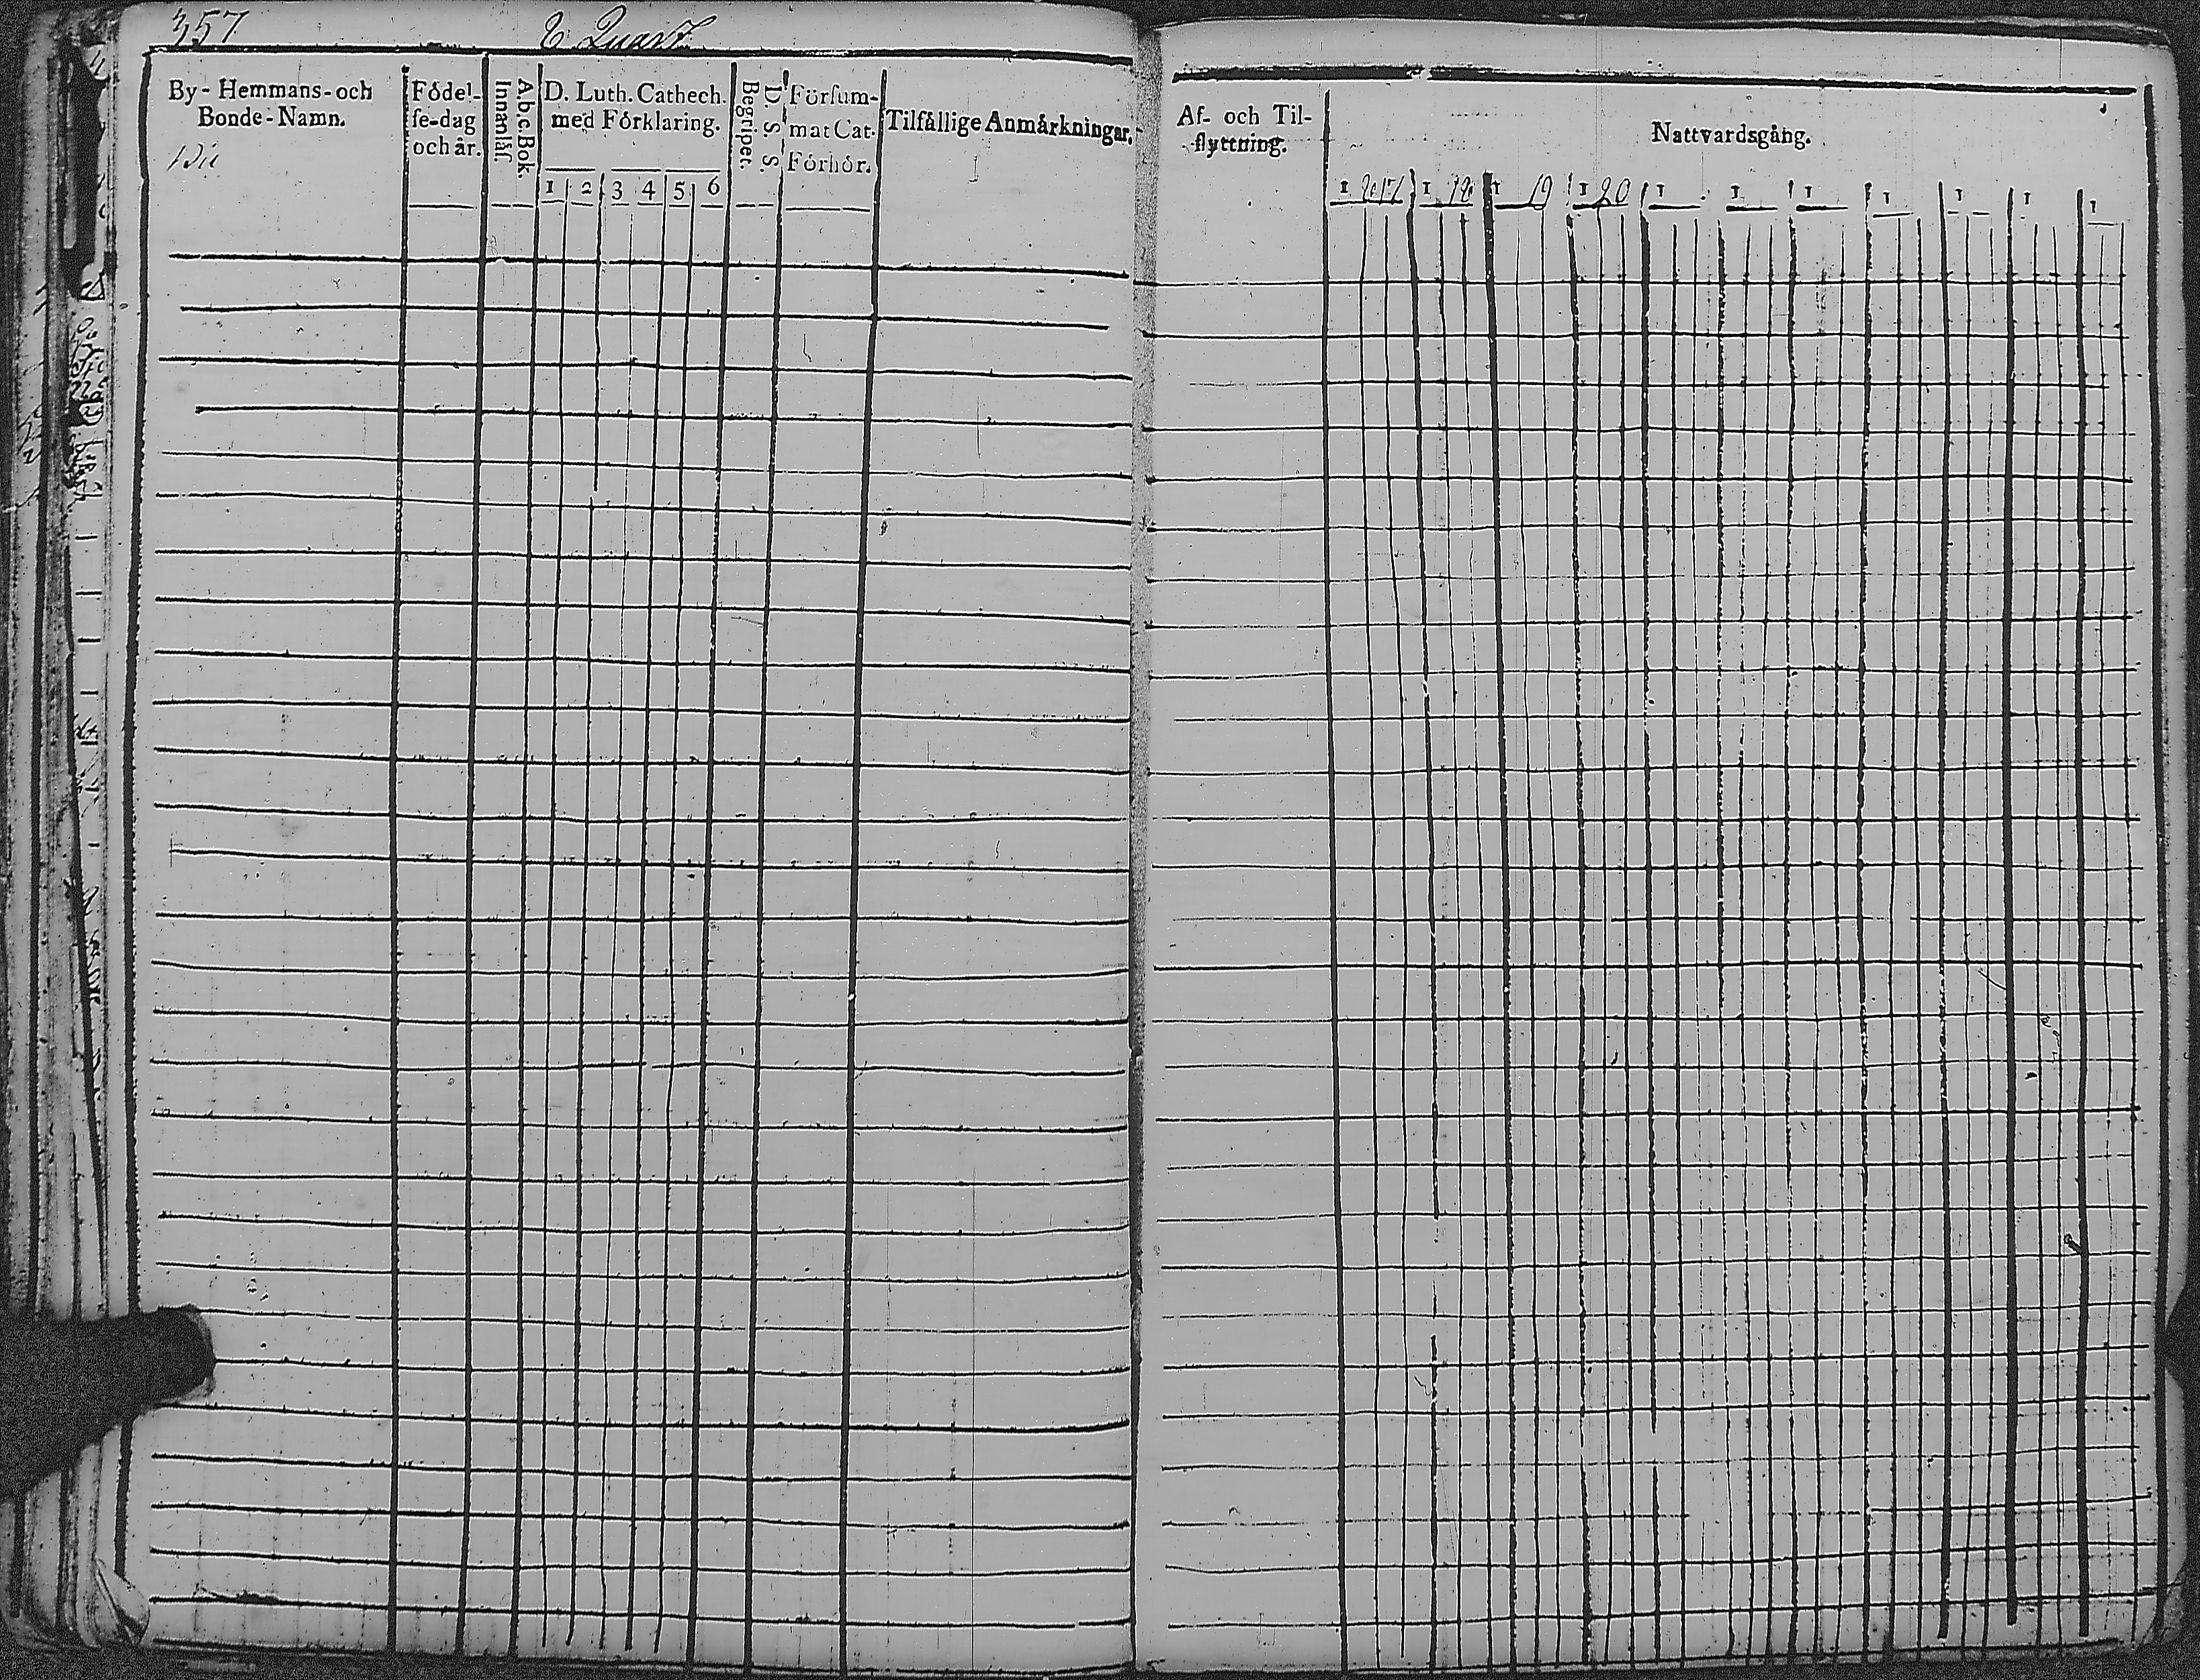 357
E. Quart.
By- Hemmans- och
Bonde-Namn.
Födel-
se-dag
och år.
A.b.c.Bok.
Innanläs.
D. Luth. Cathech.
med Förklaring.
1 2 3 4 5 6
D. S. S.
Begripet.
Försum-
mat Cat.
Förhör.
Tilfällige Anmärkningar.
Af- och Til-
flyttning.
Nattvardsgång.
1817 1 18 1 19 1 20 1 1 1 1 1 1 1